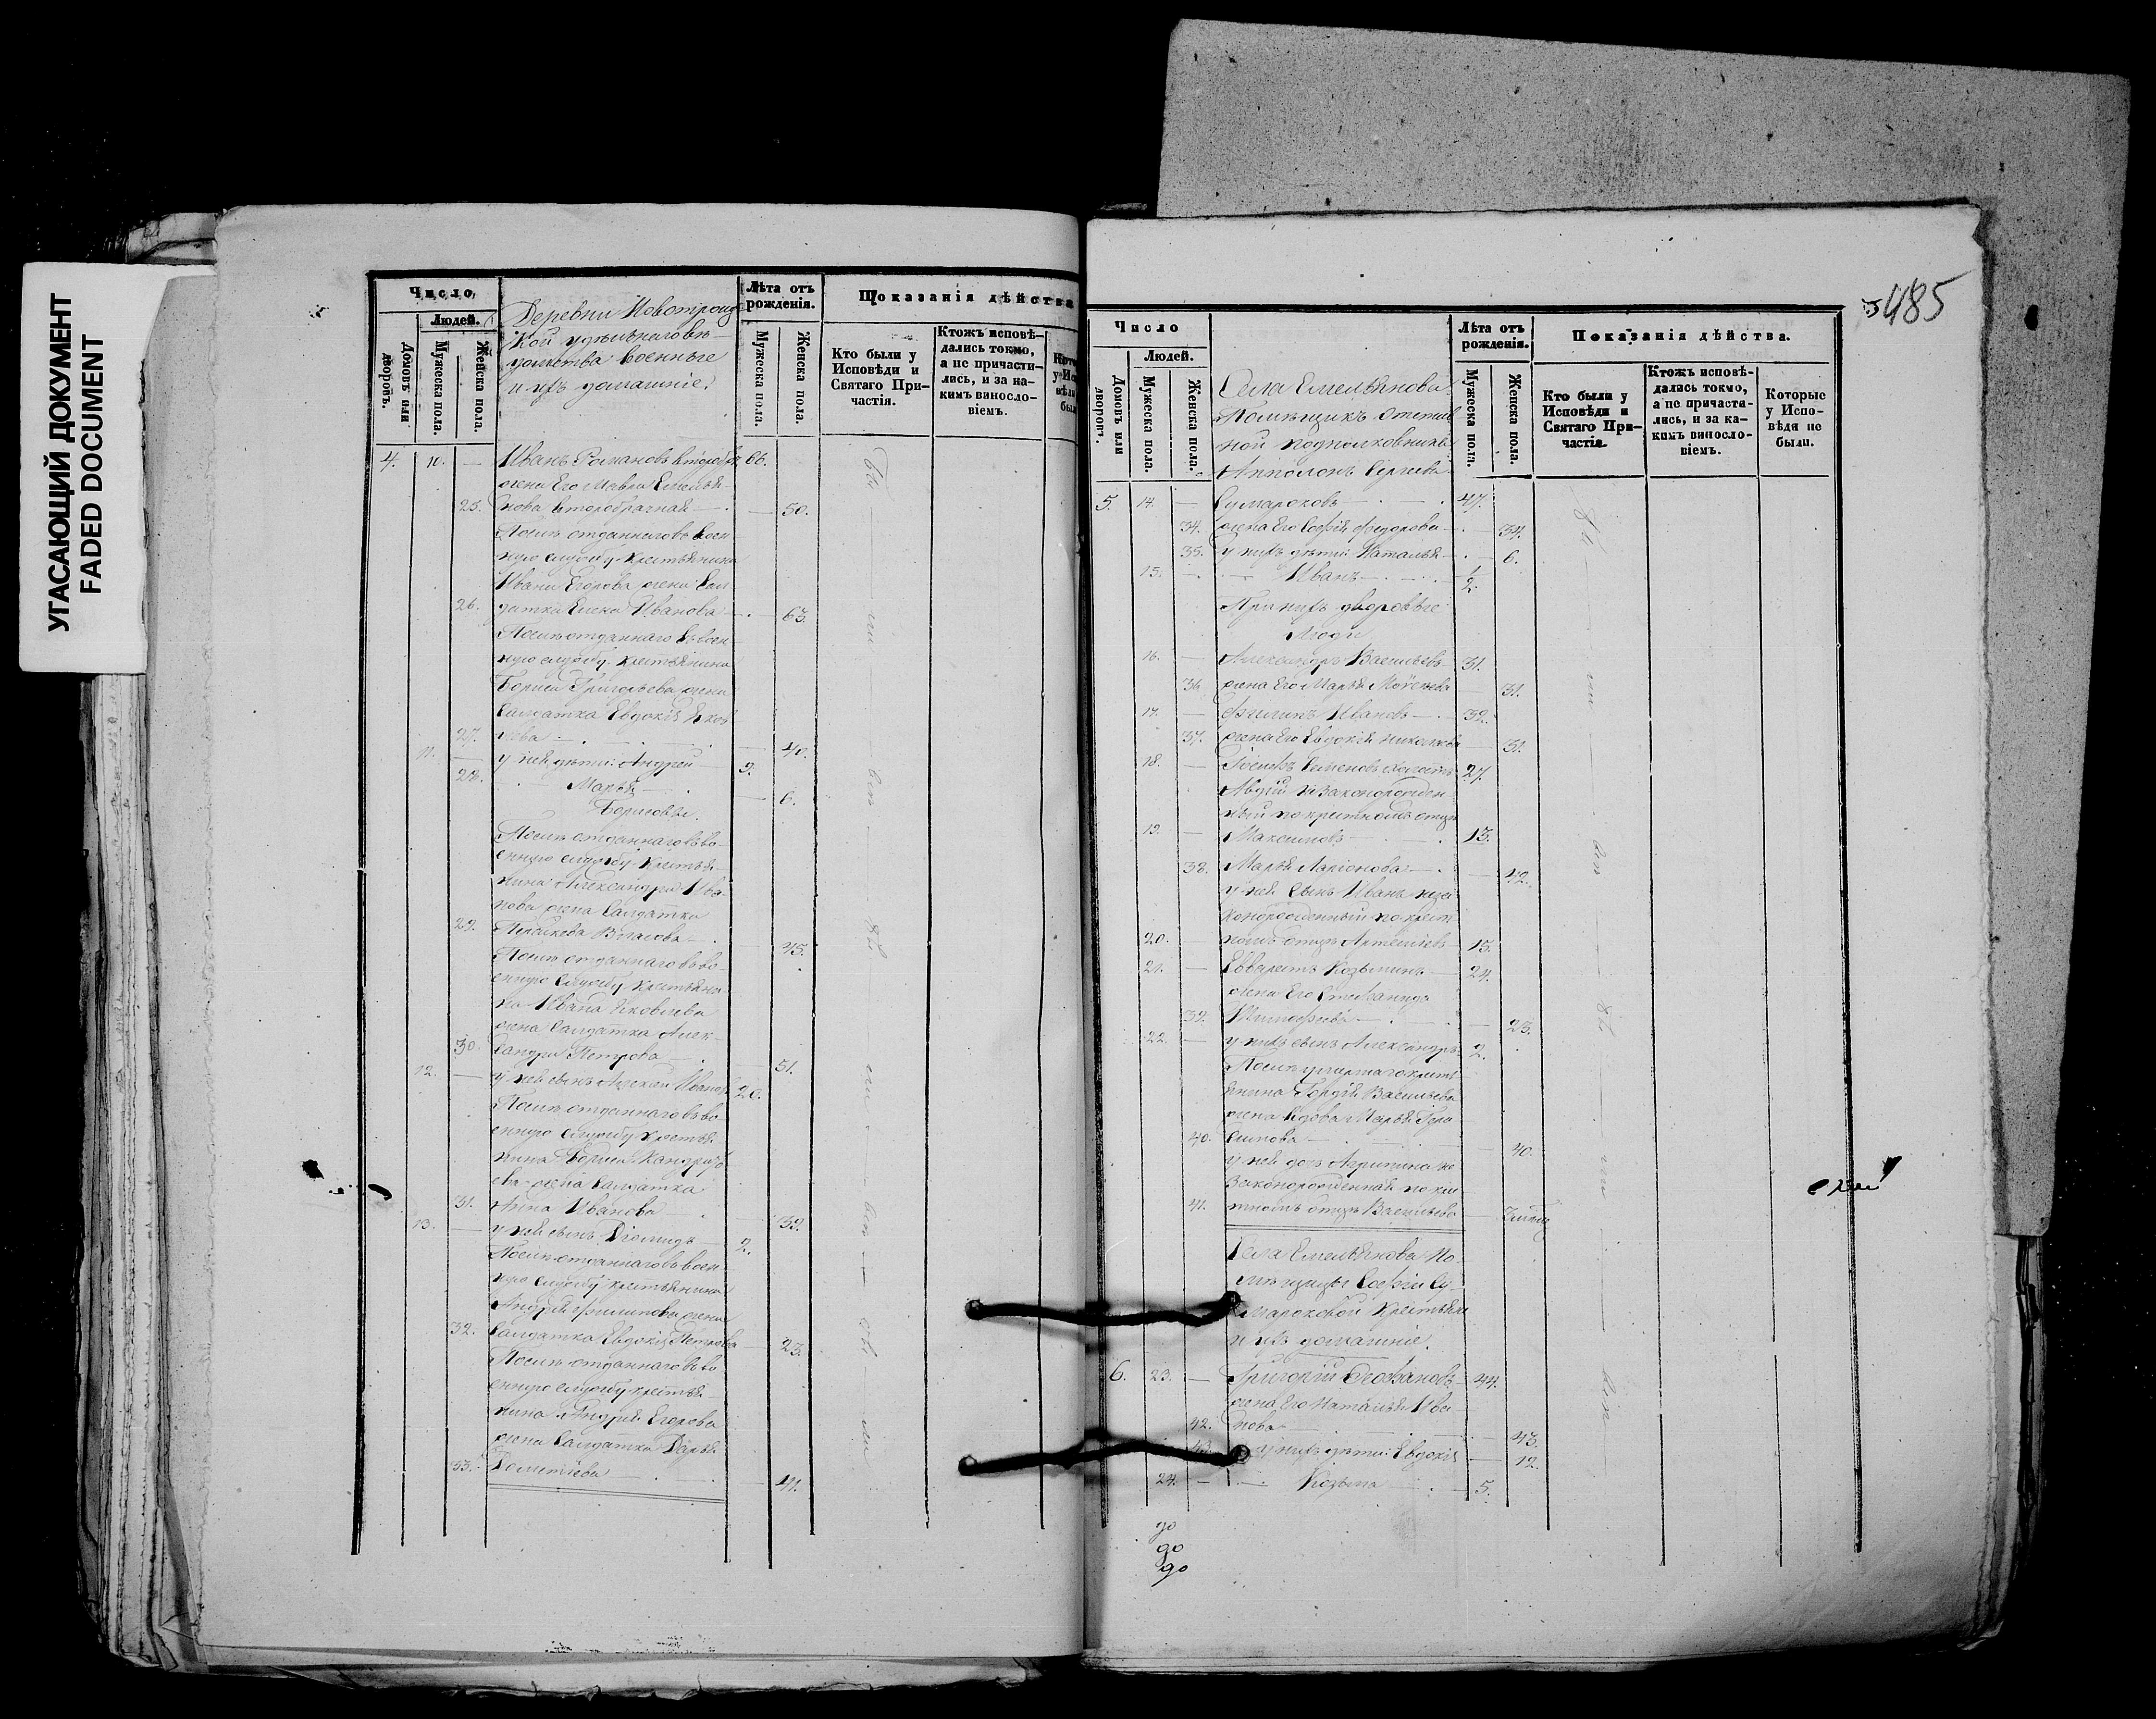 УГАСАЮЩИЙ ДОКУМЕНТ
FADED DOCUMENT
Число
Людей.
Домовъ или дворовъ.
Мужеска пола.
Женска пола.
Деревни Новотроиц
кой удѣльнаговѣ
домства военные
и ихъ домашніе.
Лѣта отъ рожденія.
Мужеска пола.
Женска пола.
Показанія дѣйства
Кто были у Исповѣди и Святаго При-частія.
Ктожъ исповѣ-дались токмо, а не причасти-лись, и за ка-кимъ винословіемъ.
4. 10. — Иванъ Романовъ 66.
жена Его Мавра Емелья-
25. нова второбрачная — 50.
Послѣ отданнаговъ воен
ную службу крестьянина
Ивана Егорова жена Сол
26. датка Елена Иванова — 63.
Послѣ отданнаго въ воен
ную службу крестьянина
Бориса Григорьева жена
Салдатка Евдокія Яков
27. лева — 40.
11. — у ней дѣти: Андрей — 9.
28. — Марья — 6.
Борисовы.
Послѣ отданнаго въ во-
енную службу крестья-
нина Александра Ива
нова жена Салдатка
29. Власова — 45.
Послѣ отданнаго въ во-
енную службу крестьяни-
на Ивана Яковлева
жена Салдатка Алек-
30. сандра Петрова — 51.
12. — у ней сынъ Алексей Ивановъ 20.
Послѣ отданнаго въ во
енную службу крестья
нина Бориса
жена Салдатка
31. Анна Иванова — 39.
13. — у ней сынъ Діомидъ 2.
Послѣ отданнаго въ воен
ную службу крестьянина
Андрея Филипова жена
32. Салдатка Евдокія Петрова 23.
Послѣ отданнаго въ во
енную службу крестья-
нина Андрея Егорова
жена Салдатка Дарья
33. Дометіева — 41.
485
Число
Людей.
Домовъ или дворовъ.
Мужеска пола.
Женска пола.
Села Емельянова
Помѣщикъ Отстав
ной подполковникъ
Апполонъ Сергеевъ
Лѣта отъ рожденія.
Мужеска пола.
Женска пола.
Показанія дѣйства.
Кто были у Исповѣди и Святаго При-частія.
Ктожъ исповѣ-дались токмо, а не причасти-лись, и за ка-кимъ винословіемъ.
Которые у Испо-вѣди не были.
5. 14. — Сумароковъ — 47.
34. жена Его Софія Федорова — 34.
35. у нихъ дѣти: Наталья — 6.
15. — Иванъ — 1/2.
При нихъ дворовые
Люди
16. — Александръ Васильевъ 31.
36. жена Его Марья Моѵсеева 31.
17. — Филипъ Ивановъ — 32.
37. жена Его Евдокія Николаева 31.
18. — Іосифъ Семеновъ холостъ 27.
Авдій незаконорожден-
ный по крестному отцу
19. — Максимовъ — 13.
38. Марья Ларіонова — 42.
у ней сынъ Иванъ неза
конорожденный по крест
20. — ному отцу Артеміевъ 15.
21. — Евварестъ Козьминъ 24.
жена Его Степанида
39. Тимофеева — 23.
22. — у нихъ сынъ Александръ 2.
Послѣ умершаго кресть
янина Гордія Васильева
жена вдова Марья Гера
40. симова — 40.
у ней дочь Агрипина не
законорожденная по кре
41. тному отцу Васильева
Села Емельянова По-
мѣщицы Софіи Су-
мароковой Крестьяне
и ихъ домашніе.
6. 23. — Григорій 44.
жена Его Наталья Ива-
42. нова — 43.
43. у нихъ дѣти: Евдокія — 12.
24. — Козьма — 5.
до
до
до